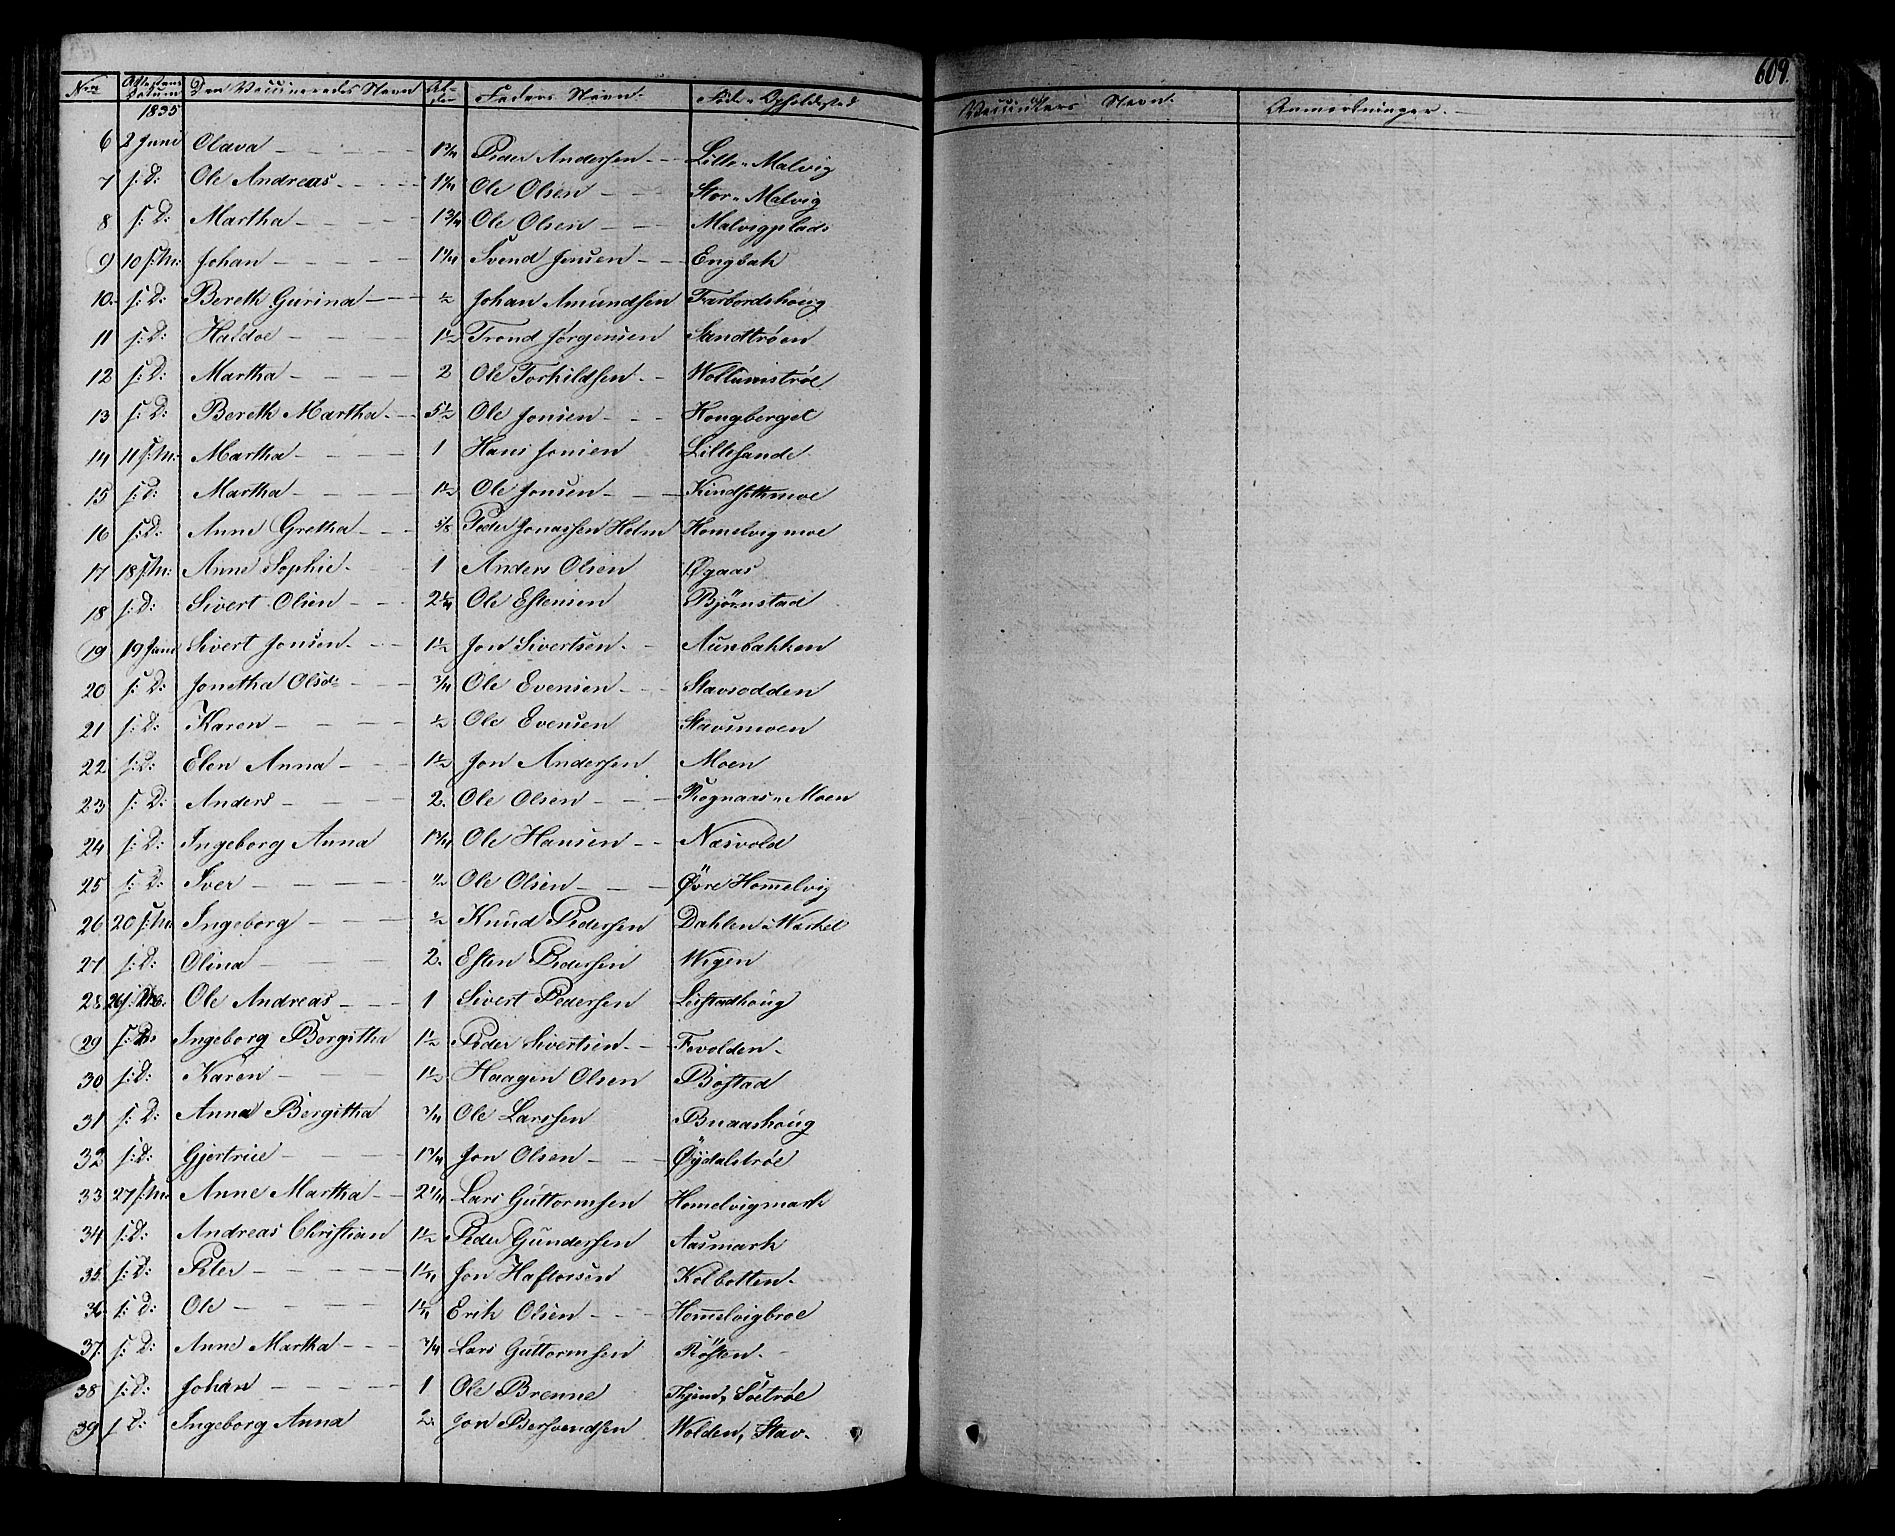 609.
No Attestens Datum Den Vaccineredes Navn Al- der Faders Navn. Føde- Opholdssted Vaccinators Navn. Anmærkninger.
1835
6 2 Juni Olava 1¾ Peder Andersen Lille Malvig
7 s: D: Ole Andreas 1¼ Ole Olsen Stor Malvig
8 s: D: Martha 1¾ Ole Olsen Malvigplads
9 10 s: M: Johan 1¼ Svend Jonsen Engbak
10 s: D: Bereth Gurina ½ Johan Amundsen Farbordshoug
11 s: D: Haldoe 1½ Trond Jørgensen Sandtrøen
12 s: D: Martha 2 Ole Torkildsen Wollumstrøe
13 s: D: Bereth Martha 5½ Ole Jonsen Kongberget
14 11 s: M: Martha 1 Hans Jonsen Lillesande
15 s: D: Martha 1½ Ole Jonsen Kindsethmoe
16 s: D: Anne Gretha 5/8 Peder Jonassen Holm Homelvigmoe
17 18 s: M: Anne Sophie 1 Anders Olsen Øgaas
18 s: D: Sivert Olsen 2¼ Ole Estensen Bjørnstad
19 19 Juni Sivert Jonsen 1½ Jon Sivertsen Aunbakken
20 s: D: Jonetha Olsd: ¾ Ole Evensen Stavsodden
21 s: D: Karen ½ Ole Evensen Stavsmoen
22 s: D: Elen Anna 1½ Jon Andersen Moen
23 s: D: Anders 2 Ole Olsen Rognaas Moen
24 s: D: Ingeborg Anna 1¾ Ole Hansen Næsvold
25 s: D: Iver ½ Ole Olsen Øvre Homelvig
26 20 s: M: Ingeborg ½ Knud Pedersen Dahlen Wærkel
27 s: D: Olina 2 Esten Pedersen Wigen
28 Ole Andreas 1 Sivert Pedersen Leistadhoug
29 s: D: Ingeborg Borgitha 1½ Peder Sivertsen Fevolden
30 s: D: Karen 1½ Haagen Olsen Bostad
31 s: D: Anna Bergitha ¾ Ole Larssen Bnaashoug
32 s: D: Gjertrue 1¼ Jon Olsen Øydalstrøe
33 27 s: M: Anne Martha 2¼ Lars Guttormsen Homelvigmark
34 s: D: Andreas Christian 1½ Peder Gundersen Aasmark
35 s: D: Peter 1¼ Jon Haftorsen Kolbotten
36 s: D: Ole 1¼ Erik Olsen Homelvigbroe
37 s: D: Anne Martha ¾ Lars Guttormsen Røsten
38 s: D: Johan 1 Ole Brenne Thjem, Søetrøe
39 s: D: Ingeborg Anna 2 Jon Bersvendsen Wolden, Stav